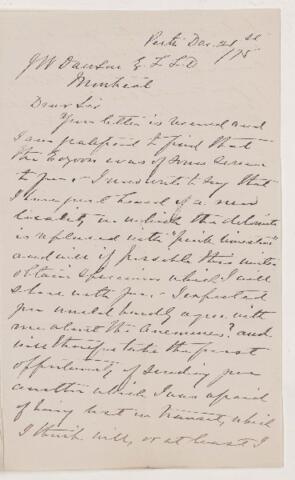 Perth Dec. 21st /75
J W Dawson E. L L D
Montreal
Dear Sir
Your letter is received and
I am gratified to find that
the Eozoon was of some service
to you. I now write to say that
I have just heard of a new
locality in which the dolomite
is replaced with "pink limestone"
and will if possible this winter
obtain specimens which I will
share with you. I expected
you would hardly agree with
me about the Anemones? and
will therefore take the first
opportunity of sending you
another which I was afraid
of being lost in transit, which
I think will, or at least I